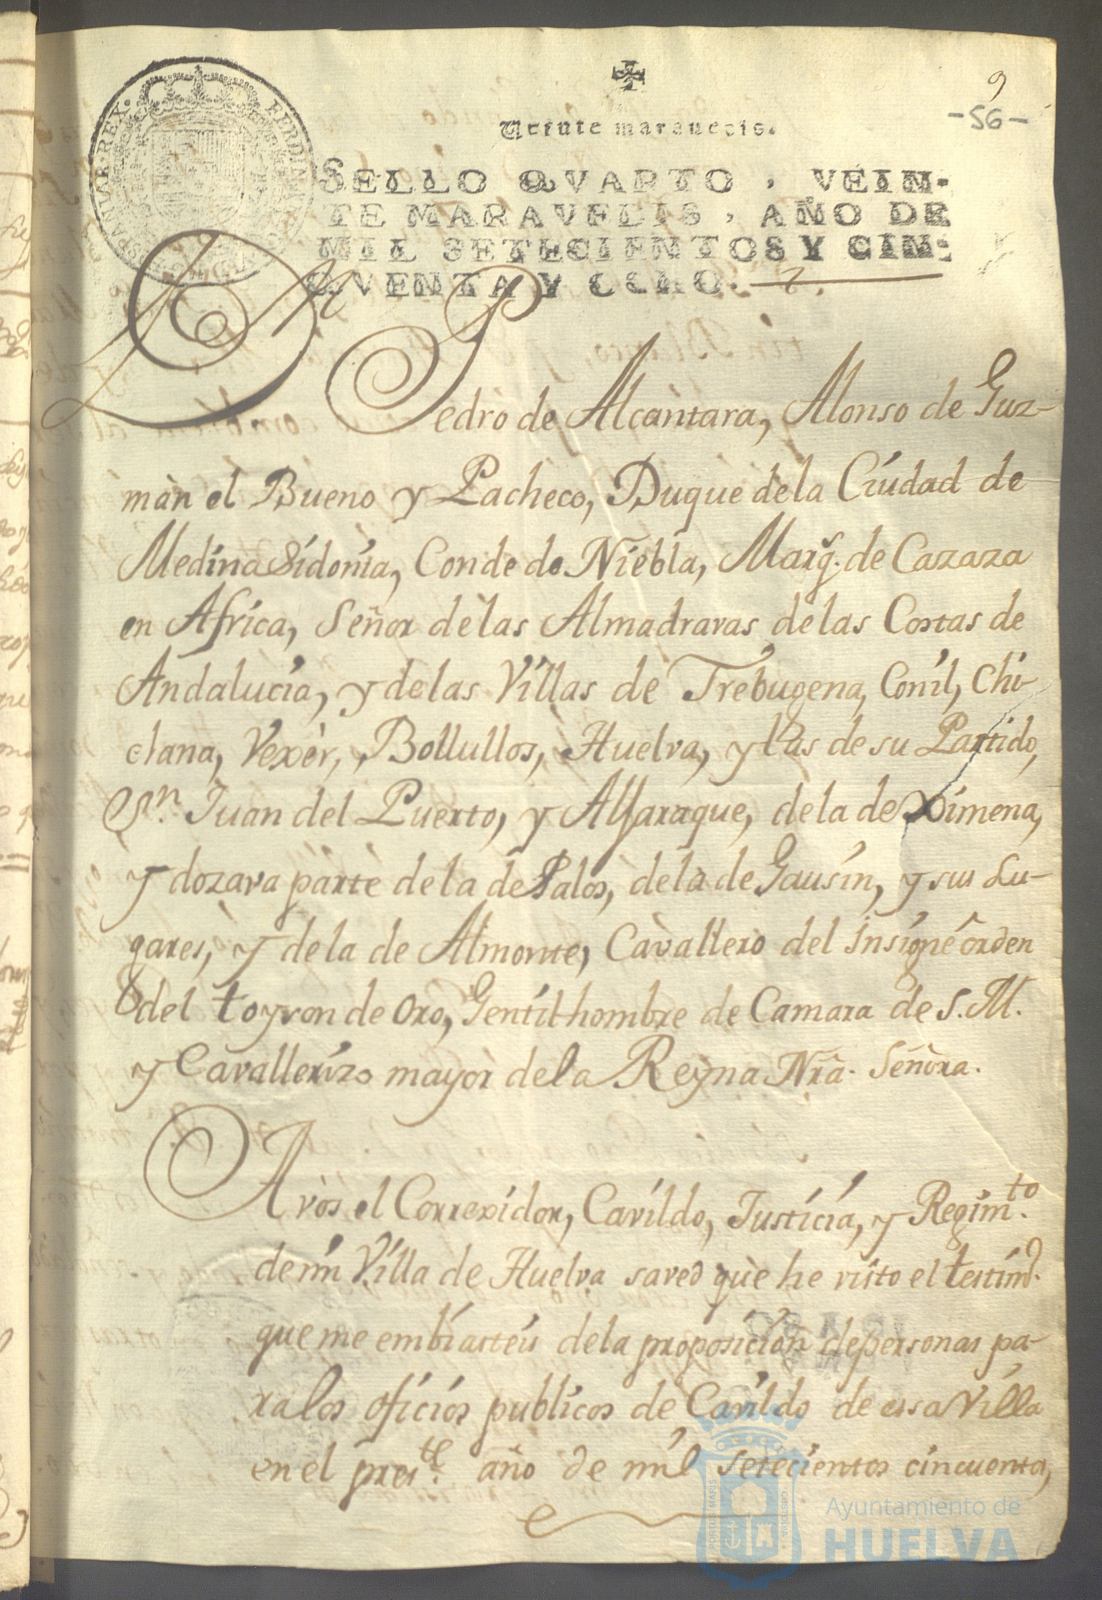 9
-56-
Veinte maravedis.
SELLO QVARTO, VEIN-
TE MARAVEDIS, AÑO DE
MIL SETECIENTOS Y CIN-
QVENTA Y OCHO.
Dn Pedro de Alcantara, Alonso de Guz-
man el Bueno y Pacheco, Duque de la Ciudad de
Medina Sidonia, Conde de Niebla, Marqs. de Cazaza
en Africa, Señor de las Almadravas de las Costas de
Andalucia, y de las Villas de Trebugena, Conil, Chi-
clana, Vexèr, Bollullos, Huelva, y las de su Partido,
Sn. Juan del Puerto, y Alfaraque, de la de Ximena,
y dozava parte de la de Palos, de la de Gausin, y sus Lu-
gares, y de la de Almonte, Cavallero del Insigne orden
del toyson de Oro, Gentilhombre de Camara de S. M.
y Cavallerizo mayor de la Reyna Nrâ. Señora.
A vòs el Correxidor, Cavildo, Justicia, y Regimto.
de mi Villa de Huelva saved què he visto el testimo.
que me embiasteis de la proposicion de personas pa-
ra los oficios publicos de Cavildo de esa Villa
en el preste. año de mil setecientos cincuenta,
Ayuntamiento de
HUELVA